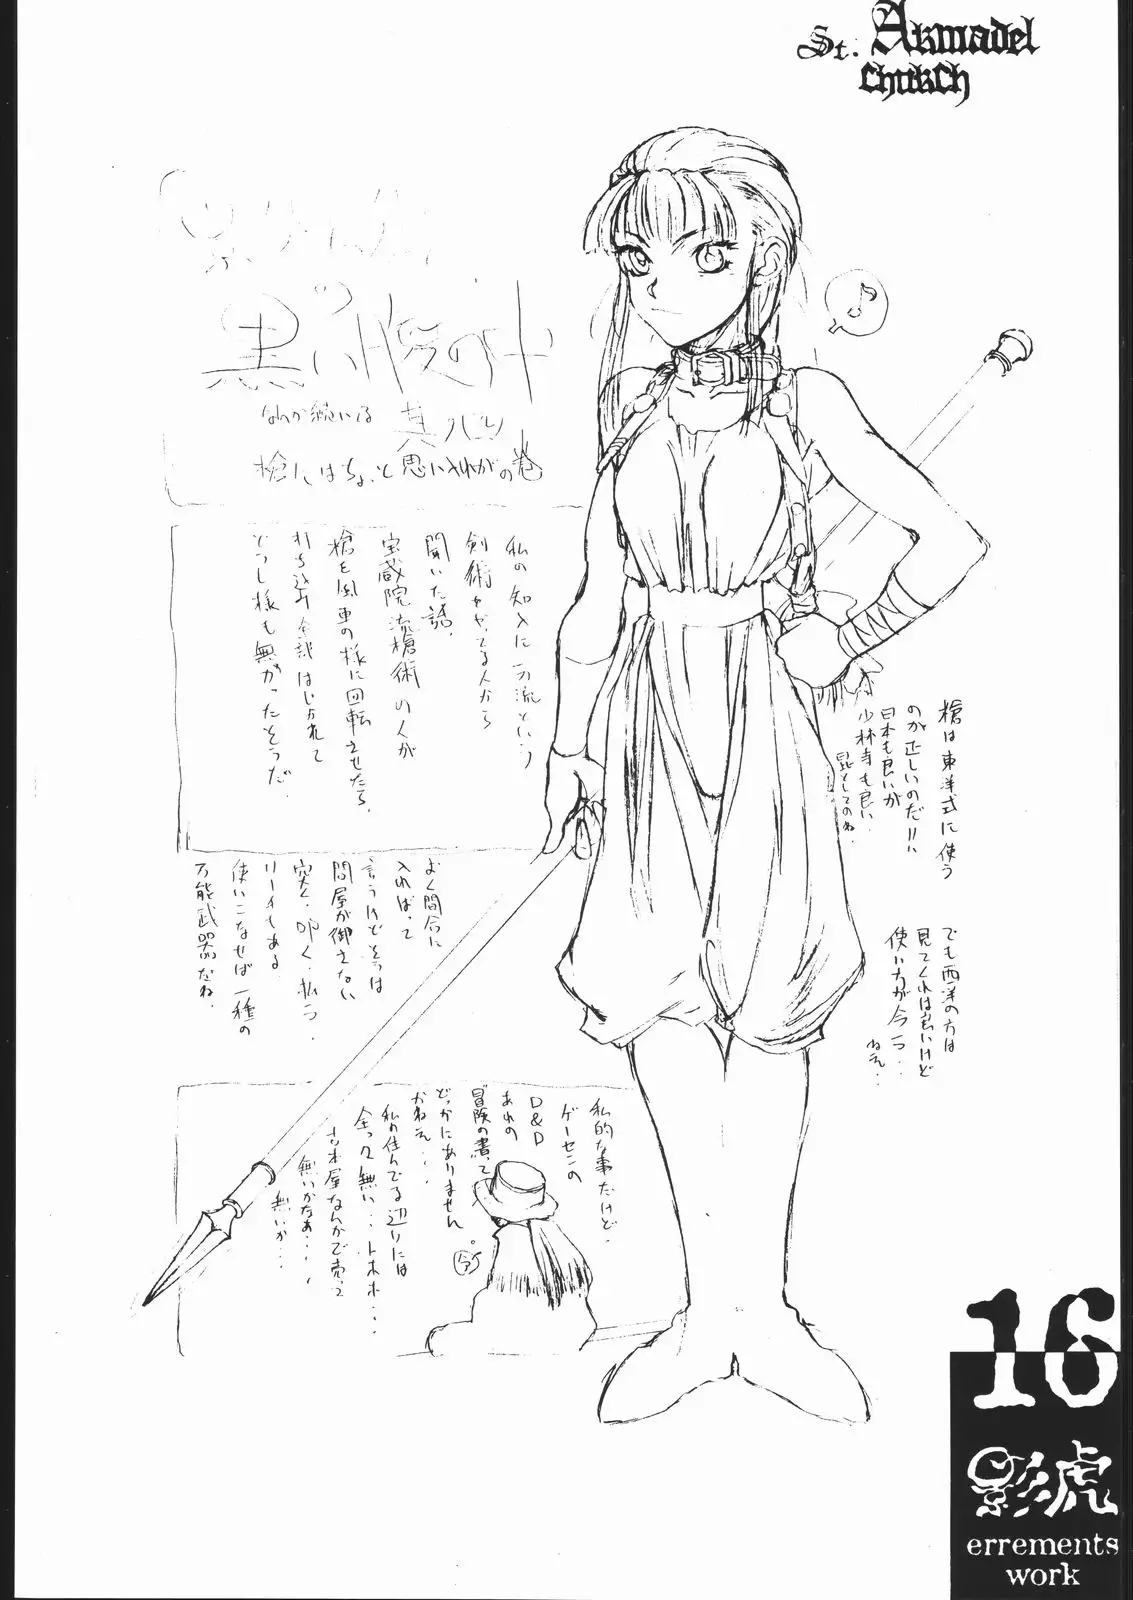 St. Armadel
church
黒い
なんか続いてる
槍にはちょっと思い入れがの巻
私の知人に一刀流という
剣術やってる人から
聞いた話、
宝蔵院流槍術の人が
槍を風車の様に回転させたら、
打ち込み全部はじかれて
どうし様も無かったそうだ。
よく間合に
入ればって
言うけどそうは
問屋が卸さない
突く、叩く、払う、
リーチもある
使いこなせば一種の
万能武器だね。
槍は東洋式に使う
のが正しいのだ!!
日本も良いが
少林寺も良い。
でも西洋の方は
見てくれは良いけど
使い方が今一つ・・
ねえ・・
私的な事だけど、
ゲーセンの
D&D
あれの
冒険の書って
どっかにありません
かねえ・・・
私の住んでる辺りには
全っ々無い・・トホホ・・・
古本屋なんかで売って
無いかなぁ・・・
無いか・・・
16
影虎
errements
work